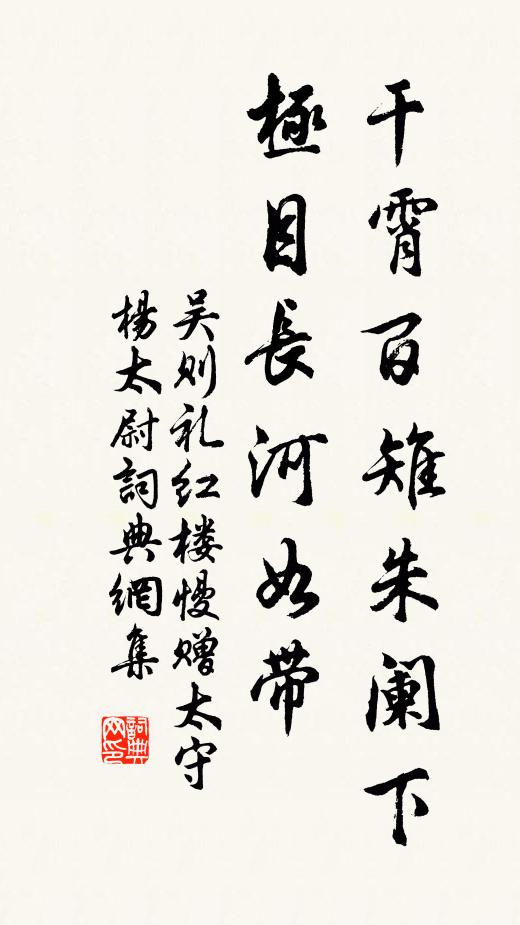 干霄百雉朱阑下
極目長河如带
吴则礼红楼慢赠太守
楊太尉詞典網集
詞典网印